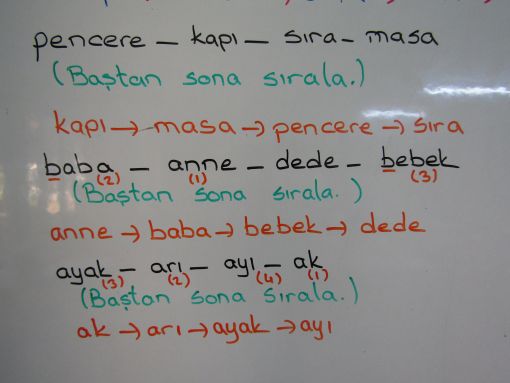 pencere - kapı - sıra - masa
(Baştan sona sırala.)
kapı → masa → pencere → sıra
baba - anne - dede - bebek
(2) (1) (3)
(Baştan sona sırala. )
anne → baba → bebek → dede
ayak - arı - ayı - ak
(3) (2) (4) (1)
(Baştan sona sırala.)
ak → arı → ayak → ayı